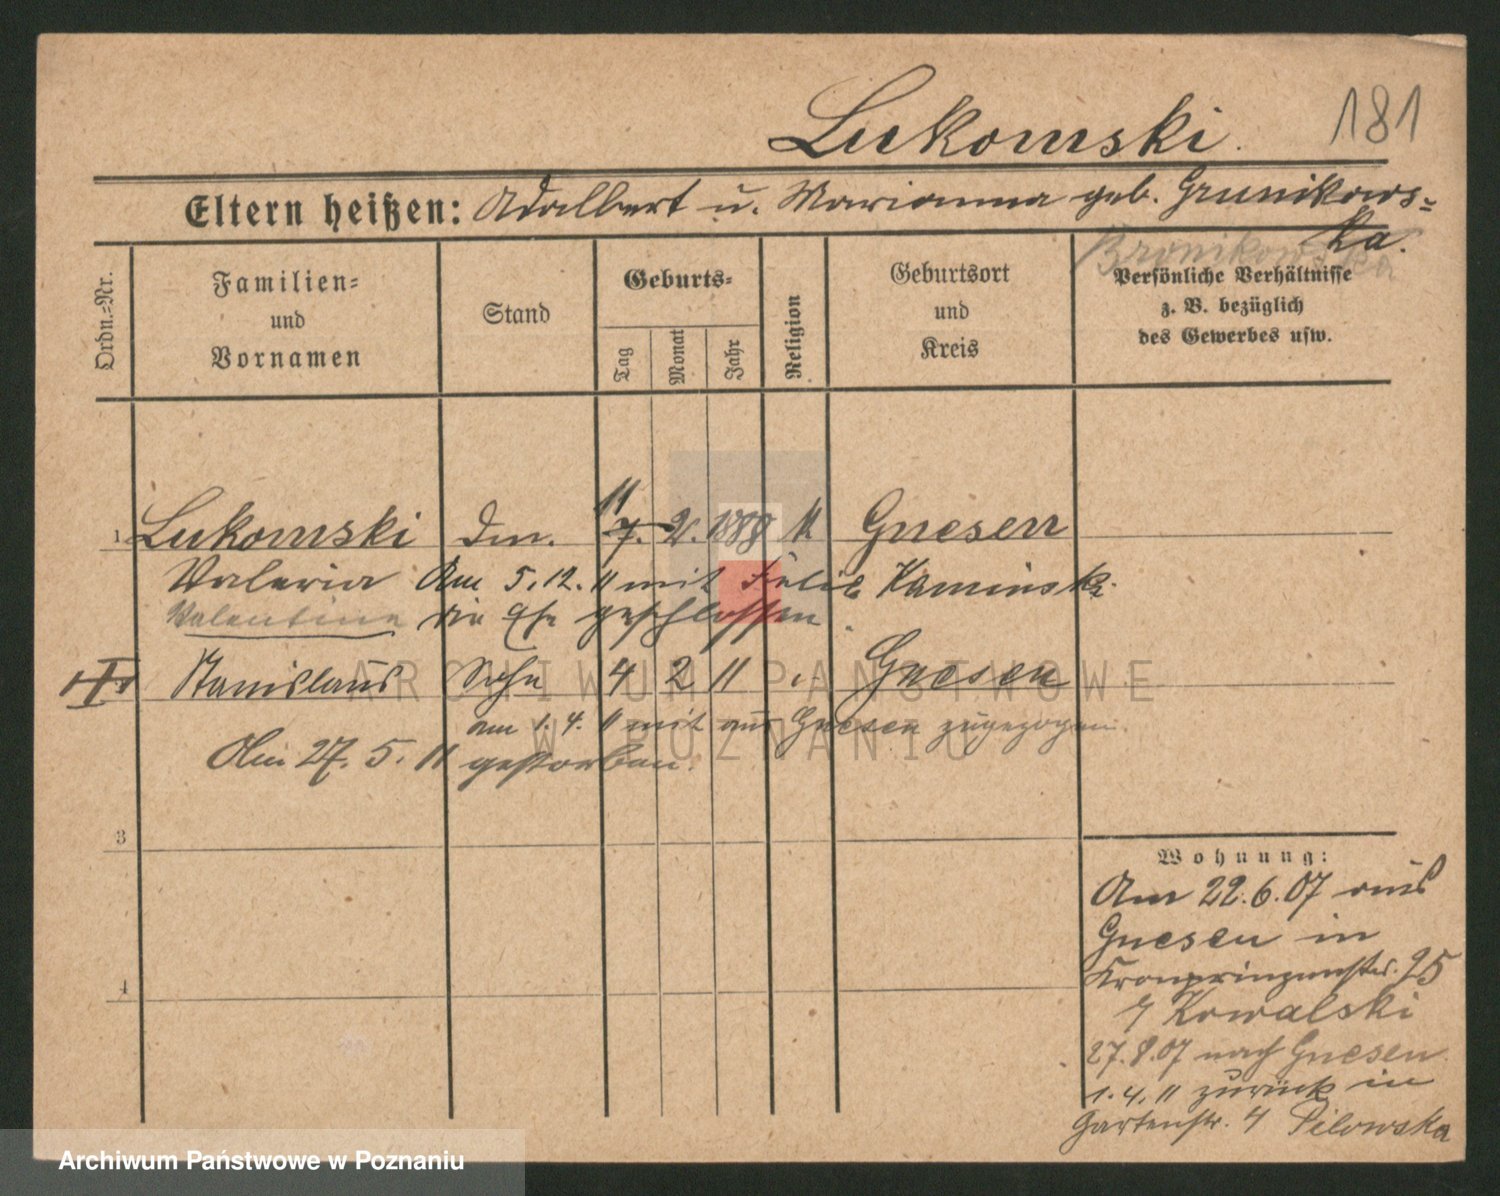 181
Lukomski.
Eltern heißen: Adalbert u. Marianna geb. Grunikows=
ka.
Bronikowska
Ordn.=Nr.
Familien=
und
Vornamen
Stand
Geburts=
Tag
Monat
Jahr
Religion
Geburtsort
und
Kreis
Persönliche Verhältnisse
z. B. bezüglich
des Gewerbes usw.
11
1 Lukomski 7. 2. 1888 Gnesen
Valeria Am 5.12.11 mit Felix Kaminski
Valentine die Ehe geschlossen.
II Stanislaus Sohn 4 2 11 Gnesen
am 1.4.11 mit aus Gnesen zugezogen.
Am 27.5.11 gestorben.
3
4
Wohnung:
Am 22.6.07 aus
Gnesen in
Kronprinzenstr. 95
Kowalski
27.8.07 nach Gnesen
1.4.11 zurück in
Gartenstr. 4 Pilowska
ARCHIWUM PAŃSTWOWE
W POZNANIU
Archiwum Państwowe w Poznaniu